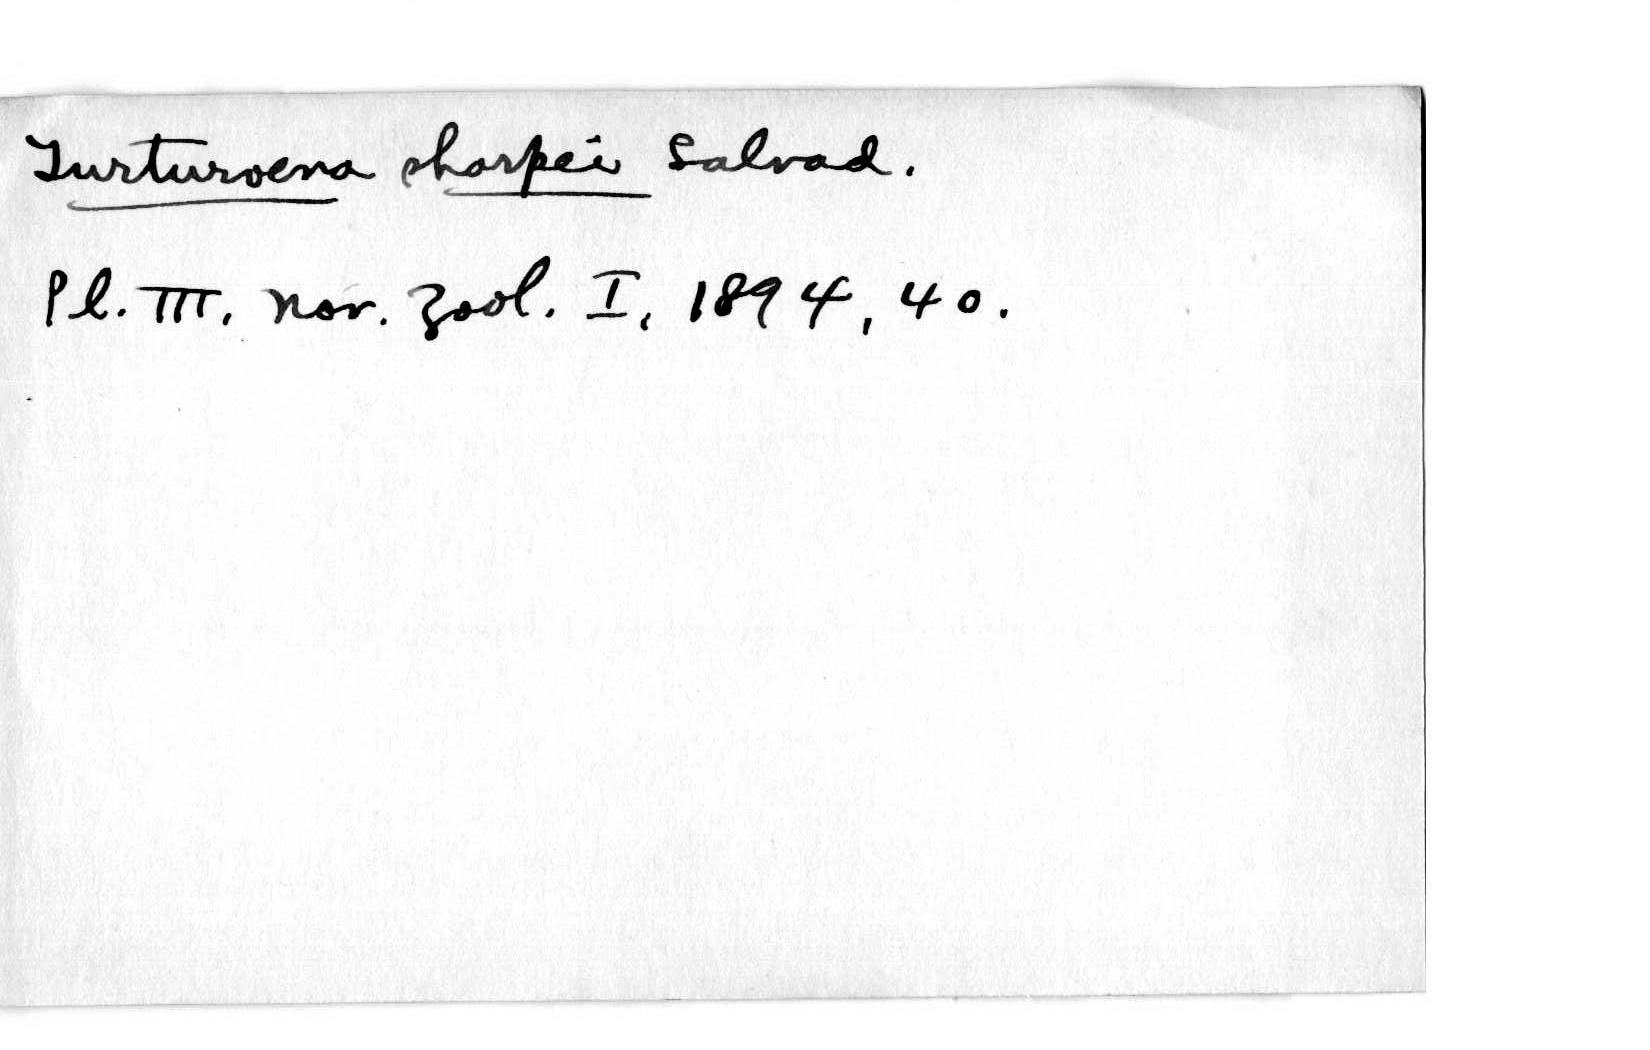 Turturoena sharpei Salvad.
Pl. III. Nov. Zool. I, 1894, 40.